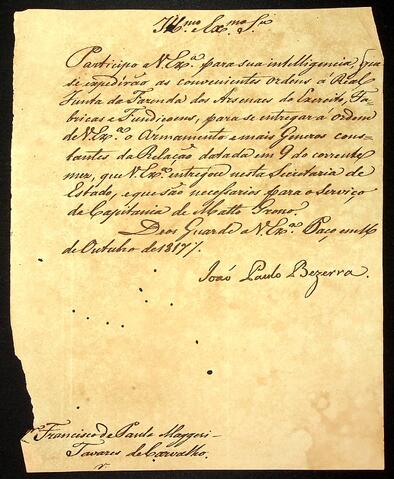 Ill.mo Ex.mo S.r
Participo a V. Ex.a para sua intelligencia, que
se expedirão as convenientes ordens á Real
Junta da Fazenda dos Arsenaes do Exercito, Fa-
bricas e Fundiçoens, para se entregar a ordem
de V. Ex.a o Armamento e mais Generos cons-
tantes da Relação datada em 9 do corrente
mez, que V. Ex.a entregou nesta Secretaria de
Estado, e que são necessarios para o serviço
da Capitania de Matto Grosso.
Deos Guarde a V. Ex.a Paço em 16
de Outubro de 1817.
João Paulo Bezerra.
Francisco de Paula Maggesi
Tavares de Carvalho.